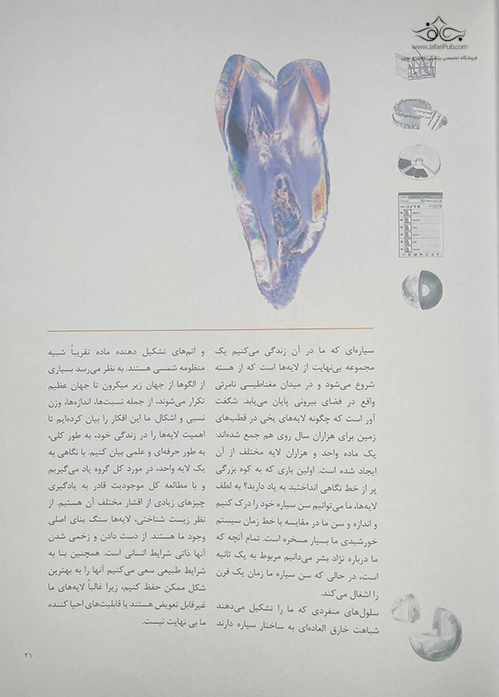 جعفری
www.JafariPub.com
سیاره‌ای که ما در آن زندگی می‌کنیم یک
مجموعه بی‌نهایت از لایه‌ها است که از هسته
شروع می‌شود و در میدان مغناطیسی نامرئی
واقع در فضای بیرونی پایان می‌یابد. شگفت
آور است که چگونه لایه‌های یخی در قطب‌های
زمین برای هزاران سال روی هم جمع شده‌اند؛
یک ماده واحد و هزاران لایه مختلف از آن
ایجاد شده است. اولین باری که به کوه بزرگی
پر از خط نگاهی انداختید به یاد دارید؟ به لطف
لایه‌ها، ما می‌توانیم سن سیاره خود را درک کنیم
و اندازه و سن ما در مقایسه با خط زمان سیستم
خورشیدی ما بسیار مسخره است. تمام آنچه که
ما درباره نژاد بشر می‌دانیم مربوط به یک ثانیه
است، در حالی که سن سیاره ما زمان یک قرن
را اشغال می‌کند.
سلول‌های منفردی که ما را تشکیل می‌دهند
شباهت خارق العاده‌ای به ساختار سیاره دارند
و اتم‌های تشکیل دهنده ماده تقریباً شبیه
منظومه شمسی هستند. به نظر می‌رسد بسیاری
از الگوها از جهان زیر میکرون تا جهان عظیم
تکرار می‌شوند، از جمله نسبت‌ها، اندازه‌ها، وزن
نسبی و اشکال. ما این افکار را بیان کرده‌ایم تا
اهمیت لایه‌ها را در زندگی خود، به طور کلی،
به طور حرفه‌ای و علمی بیان کنیم. با نگاهی به
یک لایه واحد، در مورد کل گروه یاد می‌گیریم
و با مطالعه کل موجودیت قادر به یادگیری
چیزهای زیادی از اقشار مختلف آن هستیم. از
نظر زیست شناختی، لایه‌ها سنگ بنای اصلی
وجود ما هستند. از دست دادن و زخمی شدن
آنها ذاتی شرایط انسانی است. همچنین بنا به
شرایط طبیعی سعی می‌کنیم آنها را به بهترین
شکل ممکن حفظ کنیم، زیرا غالباً لایه‌های ما
غیرقابل تعویض هستند یا قابلیت‌های احیا کننده
ما بی نهایت نیست.
۲۱